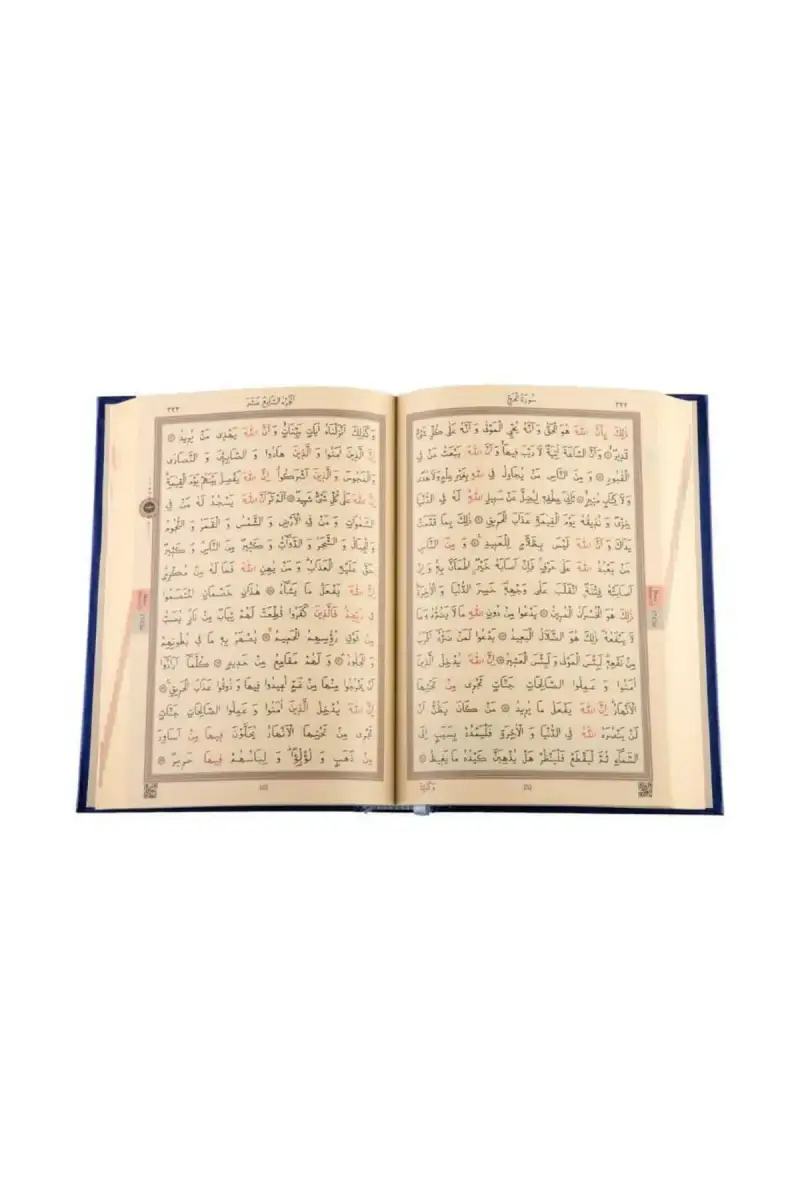 سورة الحج
٣٣٢
ذٰلِكَ بِأَنَّ اللّٰهَ هُوَ الْحَقُّ وَ أَنَّهُ يُحْيِ الْمَوْتٰى وَ أَنَّهُ عَلٰى كُلِّ شَيْءٍ
قَدِيرٌ ۞ وَ أَنَّ السَّاعَةَ اٰتِيَةٌ لَا رَيْبَ فِيهَا وَ أَنَّ اللّٰهَ يَبْعَثُ مَنْ فِي
الْقُبُورِ ۞ وَ مِنَ النَّاسِ مَنْ يُجَادِلُ فِي اللّٰهِ بِغَيْرِ عِلْمٍ وَلَا هُدًى
وَلَا كِتَابٍ مُنِيرٍ ۞ ثَانِيَ عِطْفِهِ لِيُضِلَّ عَنْ سَبِيلِ اللّٰهِ لَهُ فِي الدُّنْيَا
خِزْيٌ وَ نُذِيقُهُ يَوْمَ الْقِيٰمَةِ عَذَابَ الْحَرِيقِ ۞ ذٰلِكَ بِمَا قَدَّمَتْ
يَدَاكَ وَ أَنَّ اللّٰهَ لَيْسَ بِظَلَّامٍ لِلْعَبِيدِ ۞ وَ مِنَ النَّاسِ
مَنْ يَعْبُدُ اللّٰهَ عَلٰى حَرْفٍ فَإِنْ أَصَابَهُ خَيْرٌ اطْمَأَنَّ بِهِ وَ إِنْ
أَصَابَتْهُ فِتْنَةٌ انْقَلَبَ عَلٰى وَجْهِهِ خَسِرَ الدُّنْيَا وَ الْاٰخِرَةَ
ذٰلِكَ هُوَ الْخُسْرَانُ الْمُبِينُ ۞ يَدْعُوا مِنْ دُونِ اللّٰهِ مَا لَا يَضُرُّهُ وَ مَا
لَا يَنْفَعُهُ ذٰلِكَ هُوَ الضَّلَالُ الْبَعِيدُ ۞ يَدْعُوا لَمَنْ ضَرُّهُ أَقْرَبُ
مِنْ نَفْعِهِ لَبِئْسَ الْمَوْلٰى وَ لَبِئْسَ الْعَشِيرُ ۞ إِنَّ اللّٰهَ يُدْخِلُ الَّذِينَ
اٰمَنُوا وَ عَمِلُوا الصَّالِحَاتِ جَنَّاتٍ تَجْرِي مِنْ تَحْتِهَا
الْأَنْهَارُ إِنَّ اللّٰهَ يَفْعَلُ مَا يُرِيدُ ۞ مَنْ كَانَ يَظُنُّ أَنْ
لَنْ يَنْصُرَهُ اللّٰهُ فِي الدُّنْيَا وَ الْاٰخِرَةِ فَلْيَمْدُدْ بِسَبَبٍ إِلَى
السَّمَاءِ ثُمَّ لْيَقْطَعْ فَلْيَنْظُرْ هَلْ يُذْهِبَنَّ كَيْدُهُ مَا يَغِيظُ ۞
الجزء السابع عشر
٣٣٣
وَ كَذٰلِكَ أَنْزَلْنَاهُ اٰيَاتٍ بَيِّنَاتٍ وَ أَنَّ اللّٰهَ يَهْدِي مَنْ يُرِيدُ ۞
إِنَّ الَّذِينَ اٰمَنُوا وَ الَّذِينَ هَادُوا وَ الصَّابِئِينَ وَ النَّصَارٰى
وَ الْمَجُوسَ وَ الَّذِينَ أَشْرَكُوا إِنَّ اللّٰهَ يَفْصِلُ بَيْنَهُمْ يَوْمَ الْقِيٰمَةِ
إِنَّ اللّٰهَ عَلٰى كُلِّ شَيْءٍ شَهِيدٌ ۞ أَلَمْ تَرَ أَنَّ اللّٰهَ يَسْجُدُ لَهُ مَنْ فِي
السَّمٰوَاتِ وَ مَنْ فِي الْأَرْضِ وَ الشَّمْسُ وَ الْقَمَرُ وَ النُّجُومُ
وَ الْجِبَالُ وَ الشَّجَرُ وَ الدَّوَابُّ وَ كَثِيرٌ مِنَ النَّاسِ وَ كَثِيرٌ
حَقَّ عَلَيْهِ الْعَذَابُ وَ مَنْ يُهِنِ اللّٰهُ فَمَا لَهُ مِنْ مُكْرِمٍ
إِنَّ اللّٰهَ يَفْعَلُ مَا يَشَاءُ ۞ هٰذَانِ خَصْمَانِ اخْتَصَمُوا
فِي رَبِّهِمْ فَالَّذِينَ كَفَرُوا قُطِّعَتْ لَهُمْ ثِيَابٌ مِنْ نَارٍ يُصَبُّ
مِنْ فَوْقِ رُؤُسِهِمُ الْحَمِيمُ ۞ يُصْهَرُ بِهِ مَا فِي بُطُونِهِمْ
وَ الْجُلُودُ ۞ وَ لَهُمْ مَقَامِعُ مِنْ حَدِيدٍ ۞ كُلَّمَا أَرَادُوا
أَنْ يَخْرُجُوا مِنْهَا مِنْ غَمٍّ أُعِيدُوا فِيهَا وَ ذُوقُوا عَذَابَ الْحَرِيقِ ۞
إِنَّ اللّٰهَ يُدْخِلُ الَّذِينَ اٰمَنُوا وَ عَمِلُوا الصَّالِحَاتِ جَنَّاتٍ
تَجْرِي مِنْ تَحْتِهَا الْأَنْهَارُ يُحَلَّوْنَ فِيهَا مِنْ أَسَاوِرَ
مِنْ ذَهَبٍ وَ لُؤْلُؤًا وَ لِبَاسُهُمْ فِيهَا حَرِيرٌ ۞